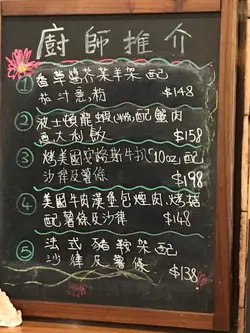 廚師推介
① 香草醬芥茉羊架 配
茄汁意粉 $148
② 波士頓龍蝦(半隻)配蟹肉
意大利飯 $158
③ 烤美國安格斯牛扒(10oz)配
沙律及薯條 $198
④ 美國牛肉漢堡包煙肉,烤菇
配薯條及沙律 $148
⑤ 法式豬鞍架配
沙律及薯條 $138